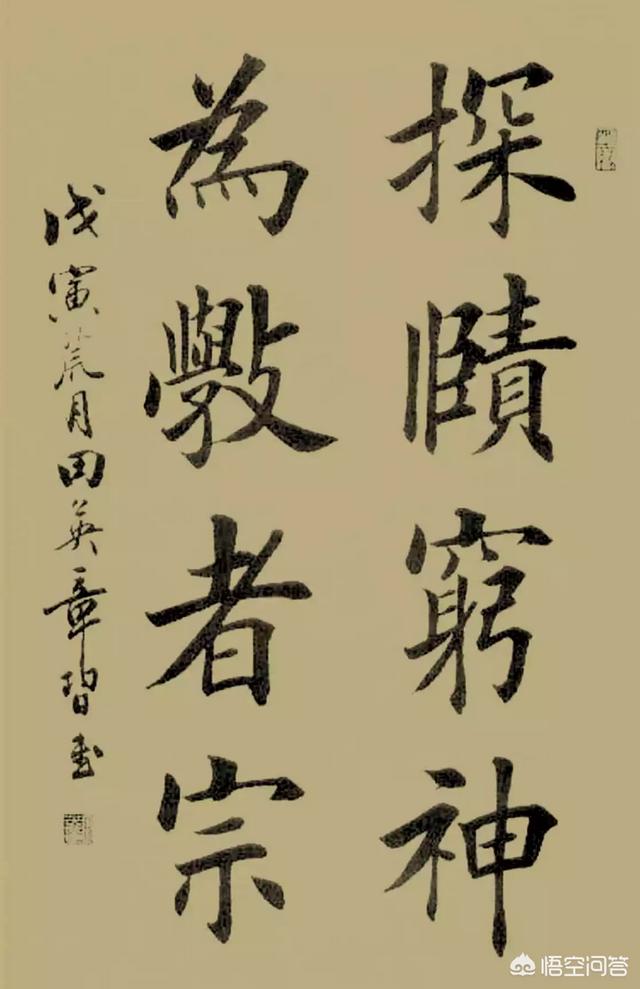 探賾窮神
為斅者宗
戊寅荒月田英章習書
悟空问答